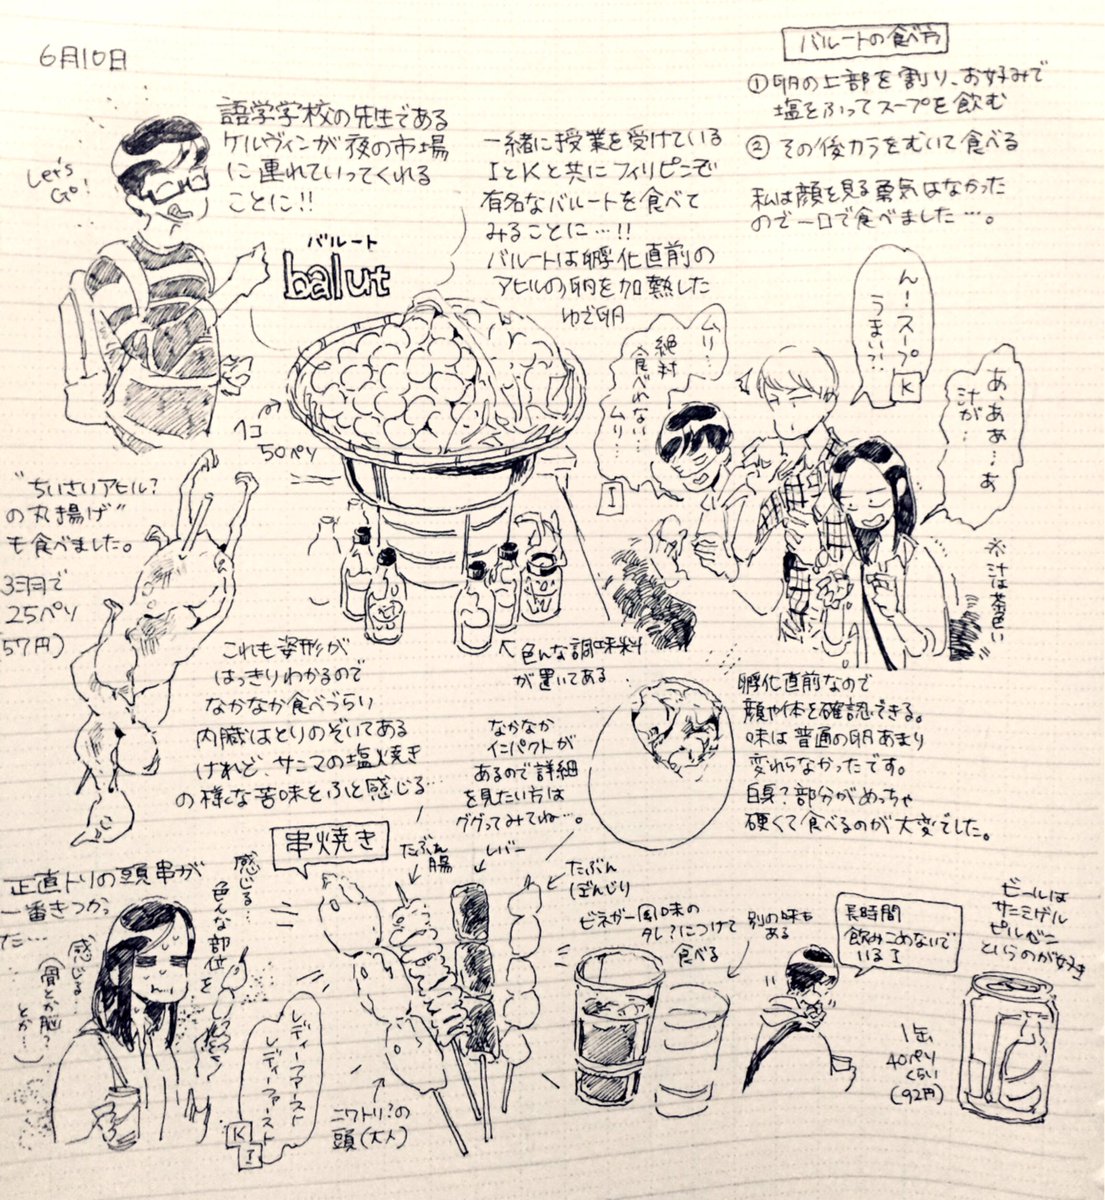 6月10日
語学学校の先生である
ケルヴィンが夜の市場
に連れていってくれる
ことに!!
Let's
Go!
バルート
balut
一緒に授業を受けている
IとKと共にフィリピンで
有名なバルートを食べて
みることに…!!
バルートは孵化直前の
アヒルの卵を加熱した
ゆで卵
バルートの食べ方
①卵の上部を割り、お好みで
塩をふってスープを飲む
②その後カラをむいて食べる
私は顔を見る勇気はなかった
ので一口で食べました…。
ん!スープ
うまいっ!!
K
あ、ああ…あ
汁が…
※汁は茶色い
ムリ…
絶対
食べれない…
ムリ…
I
1コ
50ペソ
"ちいさいアヒル?
の丸揚げ"
も食べました。
3羽で
25ペソ
57円)
これも姿形が
はっきりわかるので
なかなか食べづらい
内臓はとりのぞいてある
けれど、サンマの塩焼き
の様な苦味をふと感じる…
色んな調味料
が置いてある
なかなか
インパクトが
あるので詳細
を見たい方は
ググってみてね…。
孵化直前なので
顔や体を確認できる。
味は普通の卵あまり
変わらなかったです。
白身?部分がめっちゃ
硬くて食べるのが大変でした。
串焼き
たぶん
腸
レバー
たぶん
ぼんじり
ニワトリ?の
頭(大人)
正直トリの頭串が
一番きつかっ
た…
感じる…
色んな部位を
感じる…
(骨とか脳?
とか…)
レディーファースト
レディーファースト
K
I
ビネガー風味の
タレ?につけて
食べる
別の味も
ある
長時間
飲みこめないで
いるI
ビールは
サンミゲル
ピルセン
というのが好き
1缶
40ペソ
くらい
(92円)